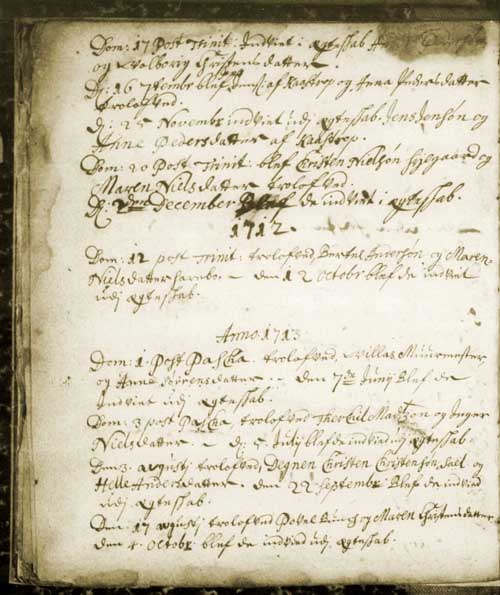 Dom: 17 Post Trinit: Indviet i Ægtessab
og Volborig Christensdatter.
D: 16 blef af Kaastrop og Anna Pedersdatter
troloved.
d: 25 Novembr indviet udj ægtessab. Jens Jensøn og
Anne Pedersdatter af Kaastrop.
Dom: 20 Post Trinit: blef Christen Nielsøn og
Maren Nielsdatter trolofved.
D: December Blef de indviet i ægtessab.
1712.
Dom: 12 post Trinit: trolofved, Bertel Andersøn og Maren
Nielsdatter - den 12 Octobr blef de indviet
udj ægtessab.
Anno 1713
Dom: 1. Post Pascha. trolofved, Villas Muurmester
og Anne Sørensdatter. - den 7de Junij Blef de
Indviet udj ægtessab.
Dom: 3 post Pascha trolofved Therkel Madsøn og Inger
Nielsdatter - d: 5 Julij blef de indvied udj ægtessab.
Den 3. Augustj trolofved, Degnen Christen Christensøn og
Helle Andersdatter. den 22 Septembr Blef de indvied
udj ægtessab.
Den 17 Augustj trolofved Povel og Maren Christensdatter
den 4. Octobr blef de indvied udj ægtessab.